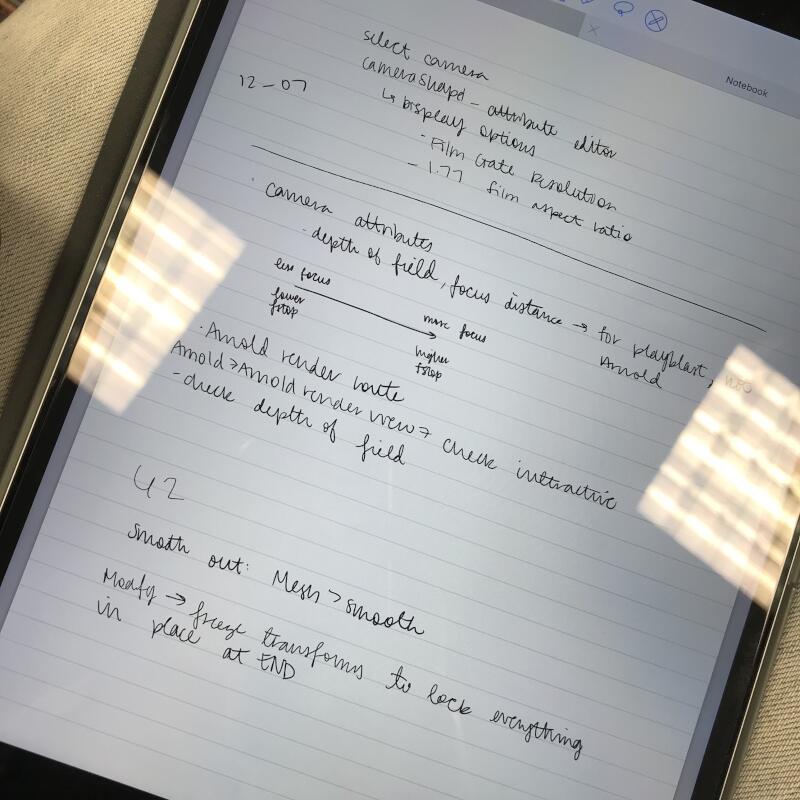 Notebook
select camera
camerashape - attribute editor
12-07
↳ Display options
· Film Gate Resolution
- 1.77 film aspect ratio
· camera attributes
· depth of field, focus distance → for playblast,
Arnold
less focus
more focus
lower
fstop
higher
fstop
· Arnold render route
Arnold > Arnold render view → check interactive
- check depth of field
42
smooth out: Mesh > smooth
Modify → freeze transforms to lock everything
in place at END